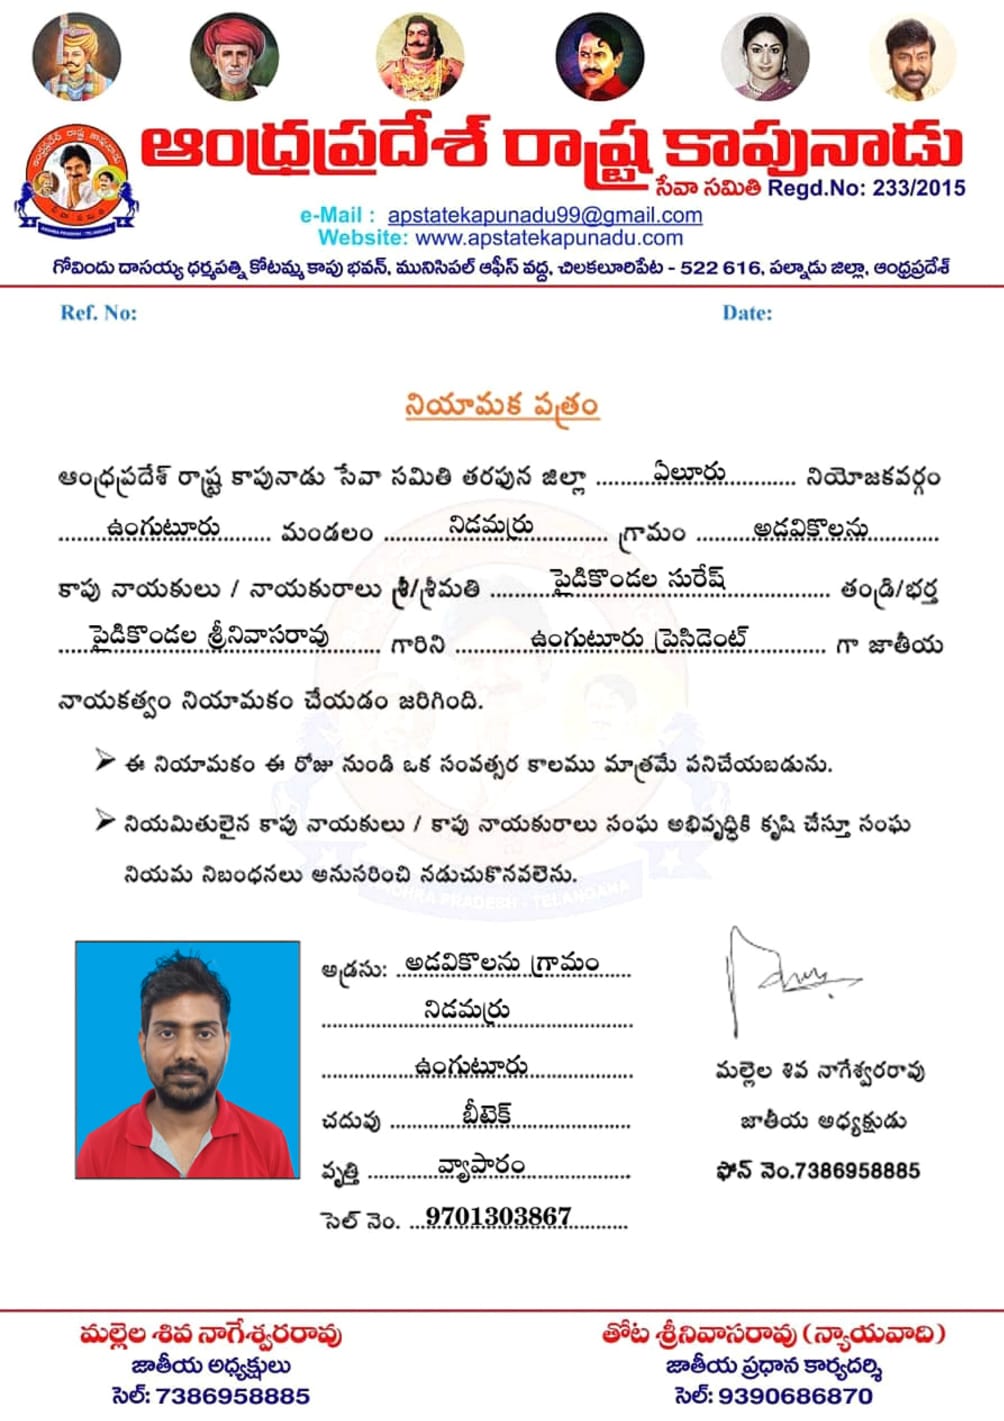 ఆంధ్రప్రదేశ్ రాష్ట్ర కాపునాడు
సేవా సమితి Regd.No: 233/2015
e-Mail : apstatekapunadu99@gmail.com
Website: www.apstatekapunadu.com
గోవిందు దాసయ్య ధర్మపత్ని కోటమ్మ కాపు భవన్, మునిసిపల్ ఆఫీస్ వద్ద, చిలకలూరిపేట - 522 616, పల్నాడు జిల్లా, ఆంధ్రప్రదేశ్
Ref. No: Date:
నియామక పత్రం
ఆంధ్రప్రదేశ్ రాష్ట్ర కాపునాడు సేవా సమితి తరపున జిల్లా ..........ఏలూరు............. నియోజకవర్గం
.........ఉంగుటూరు.......... మండలం ............నిడమర్రు.............. గ్రామం ...........అడవికొలను.............
కాపు నాయకులు / నాయకురాలు శ్రీ/శ్రీమతి ...........పైడికొండల సురేష్................... తండ్రి/భర్త
......పైడికొండల శ్రీనివాసరావు.......... గారిని ..............ఉంగుటూరు ప్రెసిడెంట్.............. గా జాతీయ
నాయకత్వం నియామకం చేయడం జరిగింది.
➢ ఈ నియామకం ఈ రోజు నుండి ఒక సంవత్సర కాలము మాత్రమే పనిచేయబడును.
➢ నియమితులైన కాపు నాయకులు / కాపు నాయకురాలు సంఘ అభివృద్ధికి కృషి చేస్తూ సంఘ
నియమ నిబంధనలు అనుసరించి నడుచుకొనవలెను.
అడ్రసు: ..అడవికొలను గ్రామం......
...................నిడమర్రు.......................
.................ఉంగుటూరు...................
చదువు .............బీటెక్......................
వృత్తి .............వ్యాపారం...................
సెల్ నెం. ...9701303867..........
మల్లెల శివ నాగేశ్వరరావు
జాతీయ అధ్యక్షుడు
ఫోన్ నెం.7386958885
మల్లెల శివ నాగేశ్వరరావు
జాతీయ అధ్యక్షులు
సెల్: 7386958885
తోట శ్రీనివాసరావు (న్యాయవాది)
జాతీయ ప్రధాన కార్యదర్శి
సెల్: 9390686870